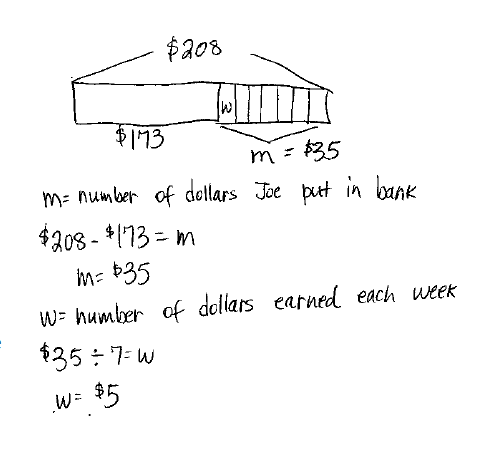 $208
w
$173
m = $35
m= number of dollars Joe put in bank
$208 - $173 = m
m= $35
w= number of dollars earned each week
$35 ÷ 7= w
w= $5